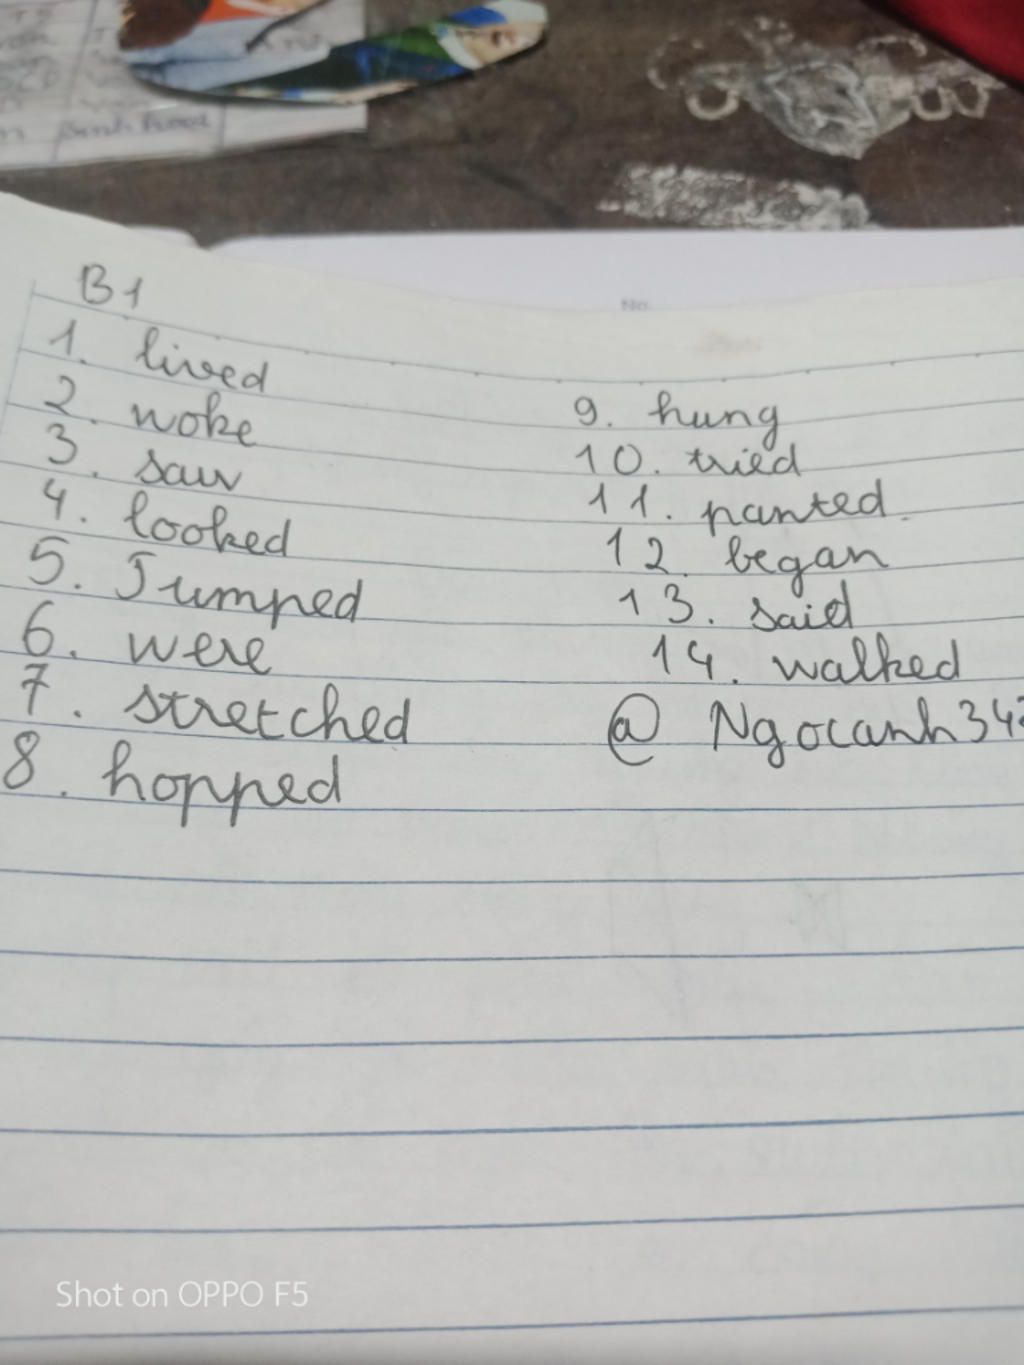 B1
1. lived
2. woke
3. saw
4. looked
5. Jumped
6. were
7. stretched
8. hopped
9. hung
10. tried
11. panted
12. began
13. said
14. walked
@ Ngocanh342
No.
Shot on OPPO F5